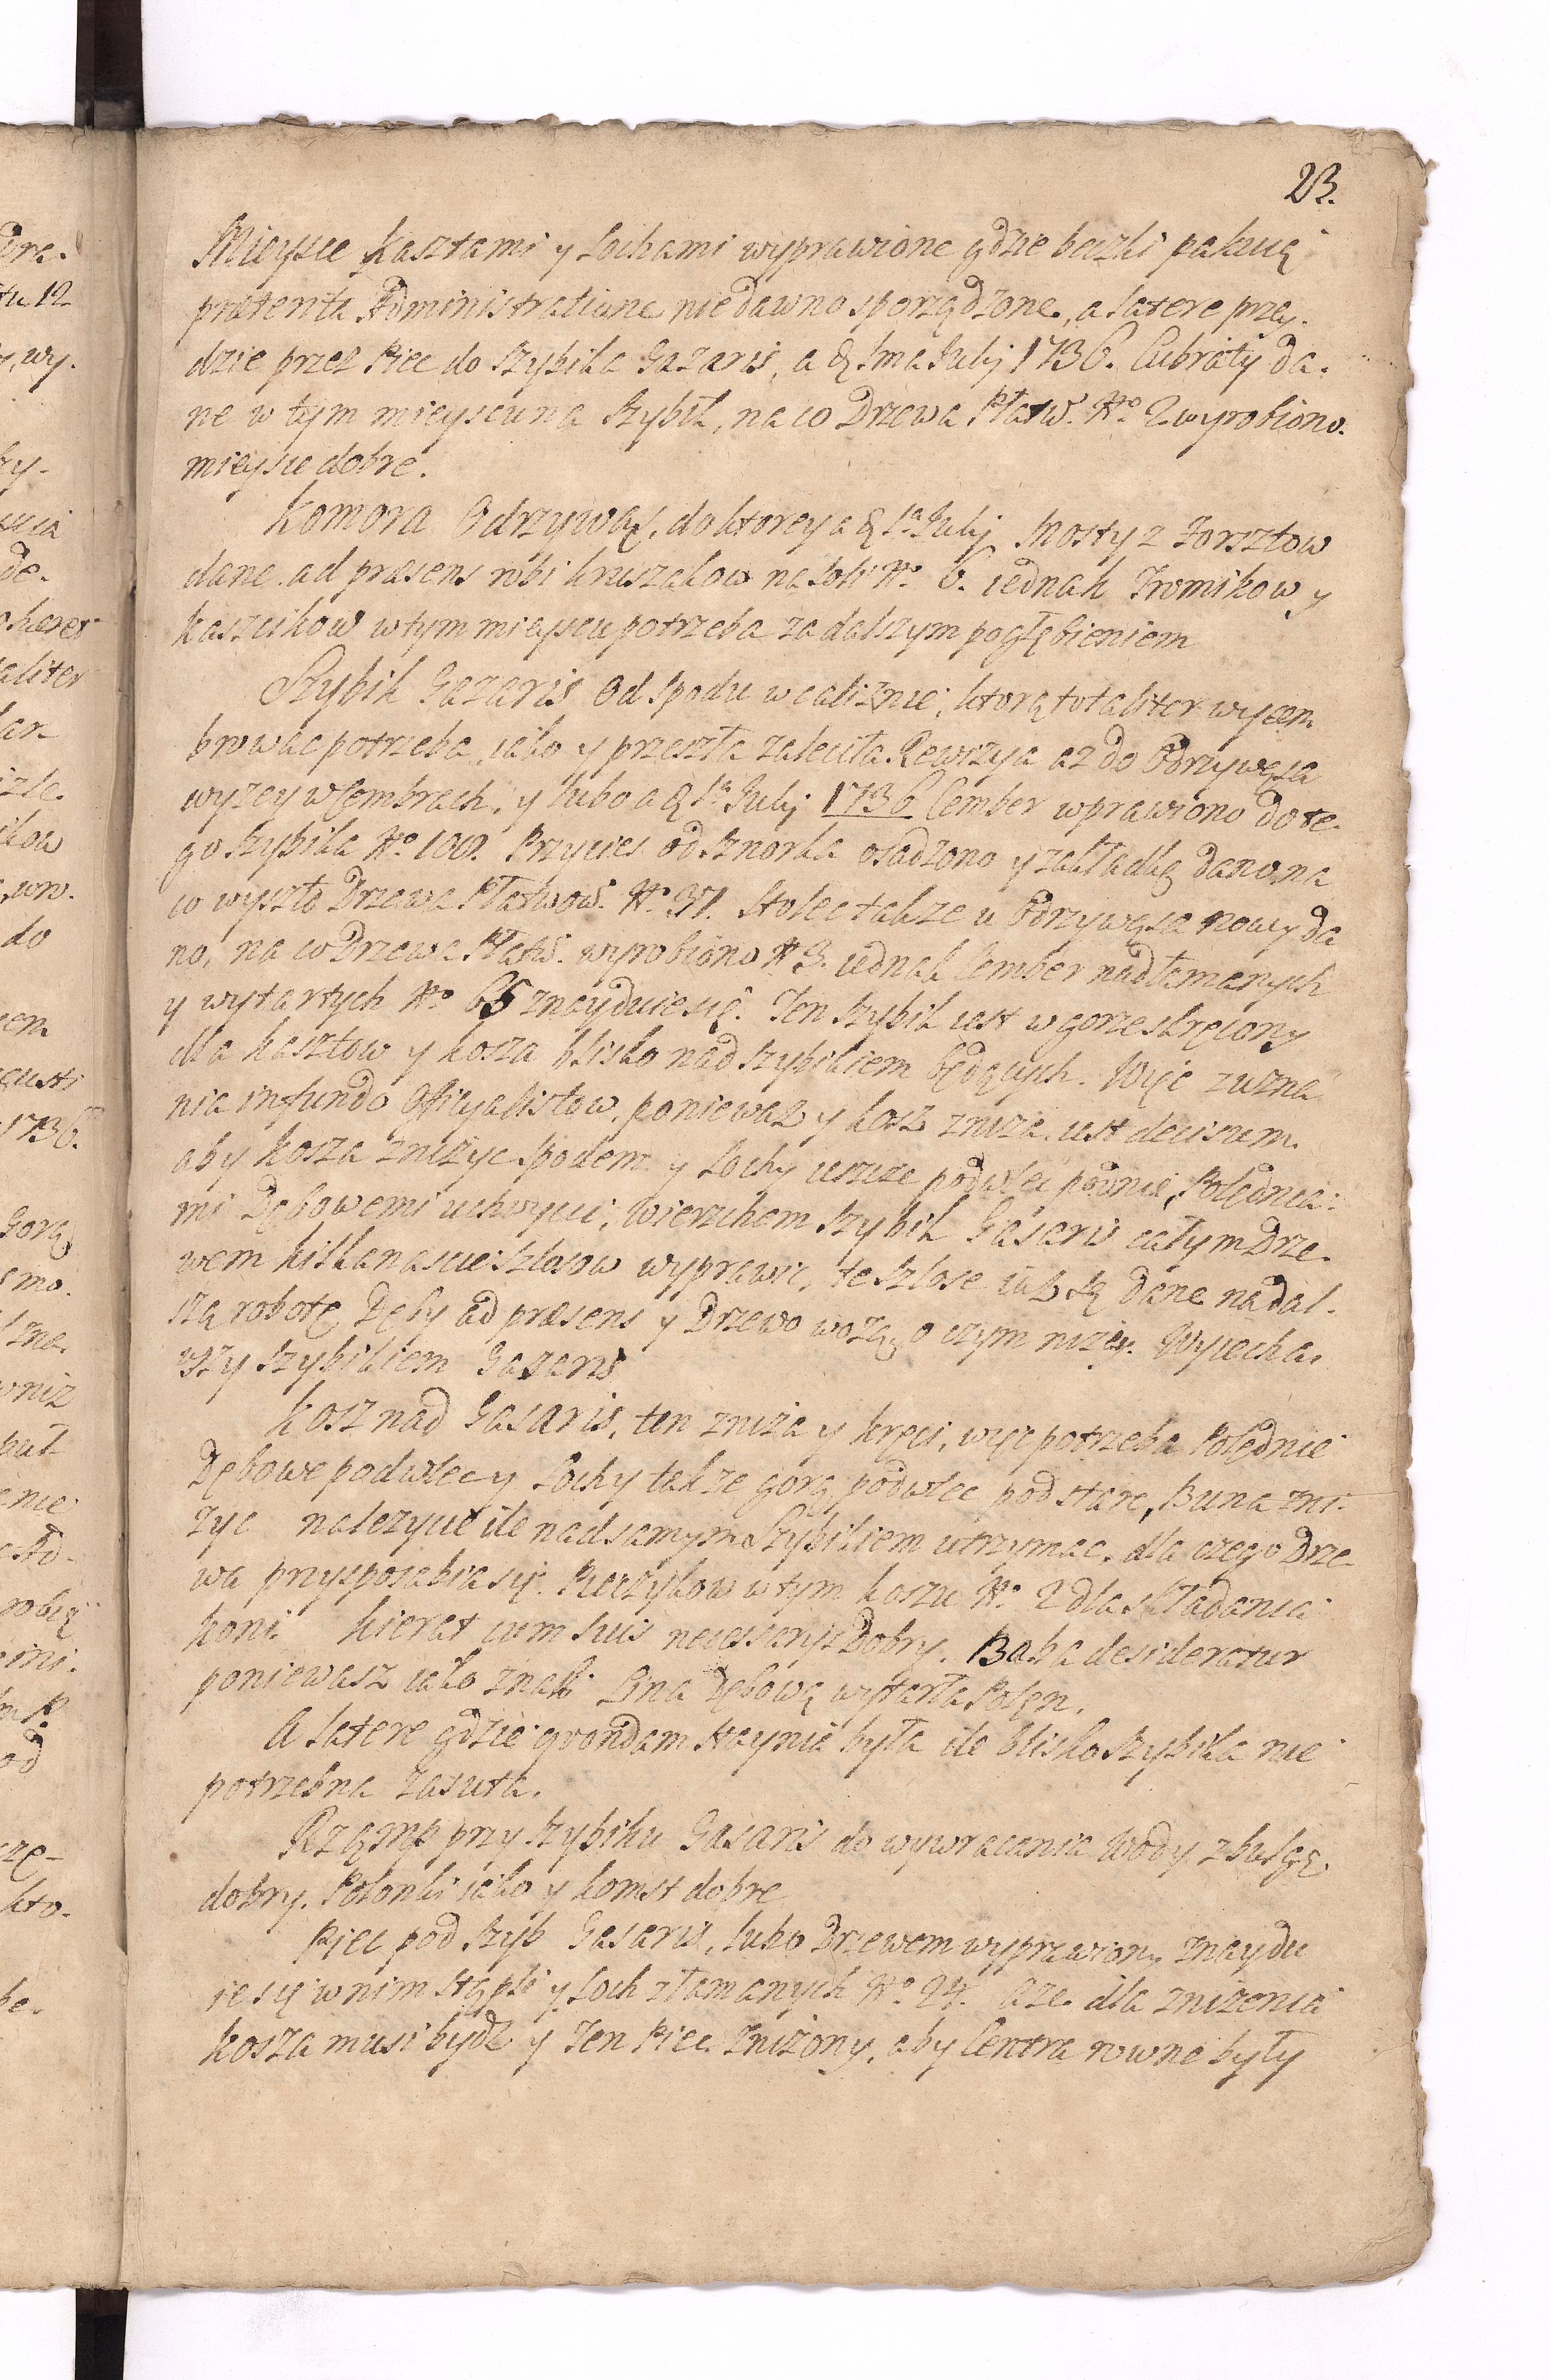 23.
Mieysce Kasztami y Sochami wyprawione gdzie beczki pakuią
præterita Administratione niedawno sporządzone, a latere prze-
dzie przez Piec do Szybika Gazaris, a D 1ma Julij 1736. Cubraty da-
ne w tym mieyscu na Szybik, na co Drzewa Płatw. No 2 wyrobiono.
mieysce dobre.
Komora Odrzywąs, do ktorey a D 1a Julij Mosty z Forsztow
dane. ad præsens robi kruszakow na soli No 6. iednak Tromikow y
kaszcikow w tym mieyscu potrzeba za dalszym pogłębieniem
Szybik Gazaris Od spodu w caliznie, ktorą totaliter wycem
browac potrzeba, iako y przeszła zaleciła Rewizya az do Odrzywęsa
wyzey w Cembrach, y lubo a D 1a Julij 1736 Cember wprawiono do te-
go Szybika No 100. Przycies od Sznorka osadzono y zakładkę dano, na
co wyszło Drzewa Płatwow. No 37. Stolec takze u Odrzywęsa nowy da
no, na co Drzewa Płatw. wyrobiono No 3. iednak Cember nadłamanych
y wytartych No 65 znayduie się. Ten Szybik iest w gorze skręcony
dla kasztow y kosza blisko nad Szybikiem będących. Więc zuzna
nia in fundo Oficyalistow, poniewaz y kosz zniza. iest decisum.
aby kosza znizyc spodem y Sochy ieszcze podwlec podnie, Polędnia-
mi Dębowemi uchwyci, wierzchem Szybik Gasaris całym Drze-
wem kilkanascie szlosow wyprawic, te szlose iuż są dane na dal-
szą robotę Dęby ad præsens y Drzewo wożą, o czym nizey. Wyiecha-
wszy Szybikiem Gazaris
Kosz nad Gasaris, ten zniża y kręci, więc potrzeba Polędnie
Dębowe podwlec y Sochy takze gorą podwlec pod stare, Buna zni-
zyc nalezycie ile nad samym Szybikiem utrzymac. dla czego Drze-
wa przysposabia się. Pieczykow w tym koszu No 2 dla składania
koni. Kierat cum suis necessarijs Dobry. Baba desideratur
poniewasz iako znaki Lina Dębową wytarła Polęn.
A latere gdzie quondam Staynia była ile blisko Szybika nie
potrzebna zasuta.
Rząmp przy Szybiku Gasaris do wywracania Wody z bulgę
dobry. Polonki iako y komst dobre
Piec pod Szyb Gasaris, lubo Drzewem wyprawiony znaydu
ie się w nim Stępli y Soch złamanych No 24. a ze dla znizenia
kosza musi bydz y Ten Piec Znizony, aby Centra rowne były